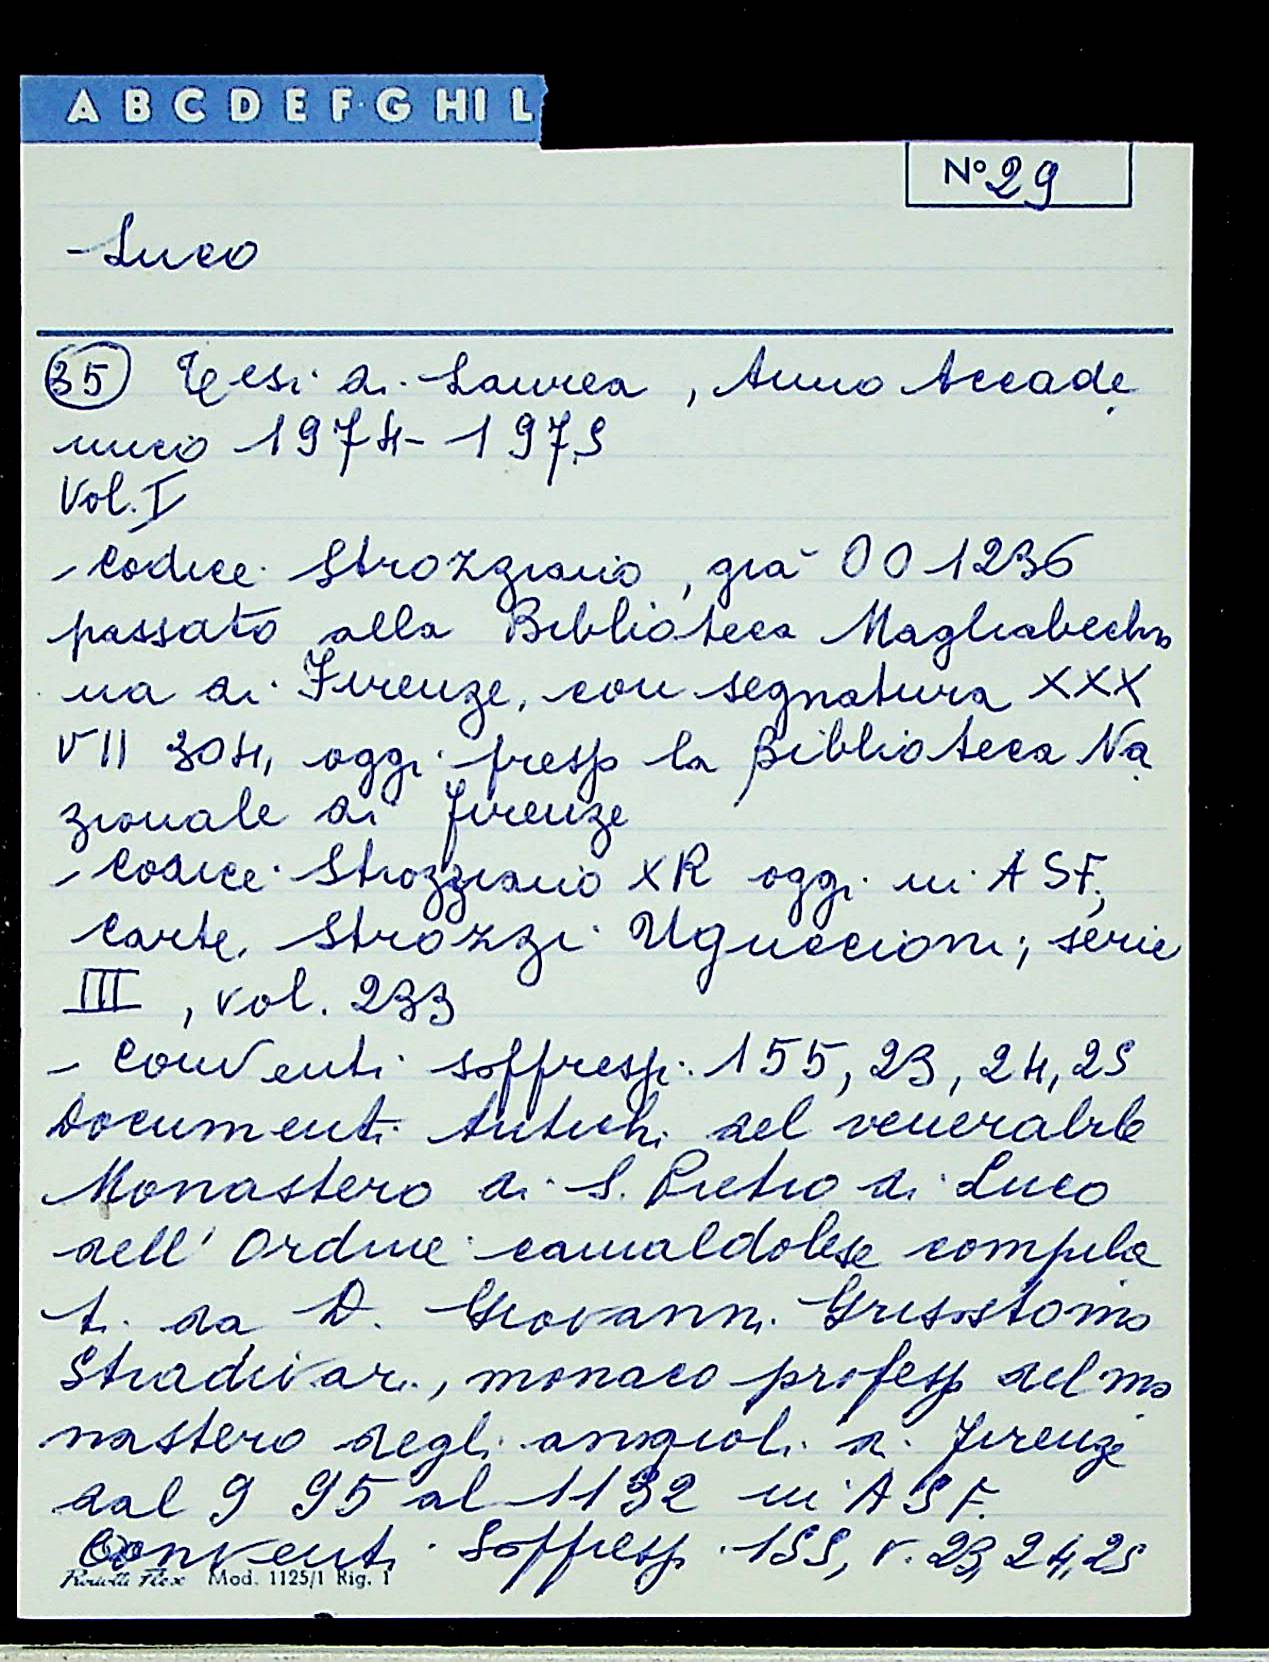 A B C D E F G HI L
N° 29
- Luco
35 Tesi di Laurea, Anno Accade
mico 1974-1975
Vol. I
- Codice Strozziano, già 00 1236
passato alla Biblioteca Magliabechia
na di Firenze, con segnatura XXX
VII 304, oggi presso la Biblioteca Na
zionale di Firenze
- Codice Strozziano XR oggi in ASF,
Carte Strozzi Uguccioni; serie
III, vol. 233
- Conventi soppressi 155, 23, 24, 25
Documenti Antichi del venerabile
Monastero di S. Pietro di Luco
dell'Ordine camaldolese compila
ti da D. Giovanni Grisostomo
Stradivari, monaco professo del mo
nastero degli angioli di Firenze
dal 9 95 al 1132 in ASF.
Conventi Soppressi 155, v. 23, 24, 25
Mod. 1125/1 Rig. 1